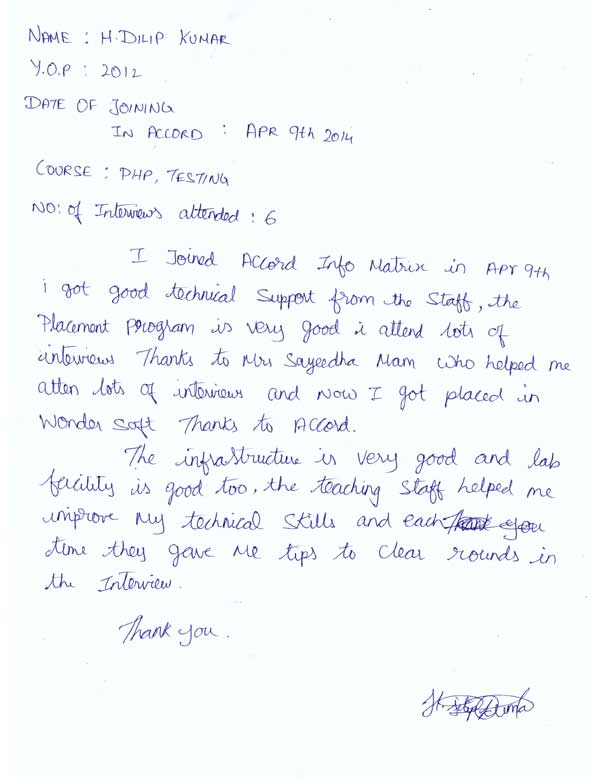 NAME : H. DILIP KUMAR
Y.O.P : 2012
DATE OF JOINING
IN ACCORD : APR 9th 2014
COURSE : PHP, TESTING
NO: of Interviews attended : 6
I Joined Accord Info Matrix in APr 9th
i got good technical Support from the Staff, the
Placement program is very good i attend lots of
interviews Thanks to Mrs Sayeedha Mam who helped me
atten lots of interviews and Now I got placed in
Wonder Soft Thanks to Accord.
The infrastructure is very good and lab
facility is good too, the teaching Staff helped me
improve My technical Skills and each Thank you
time they gave me tips to clear rounds in
the Interview.
Thank you.